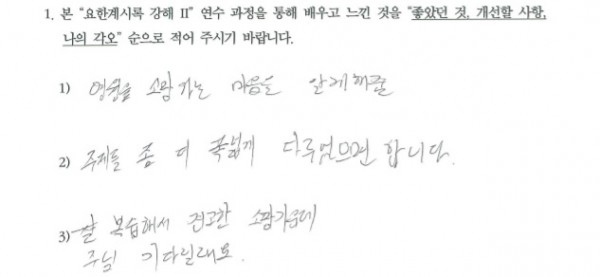 1. 본 “요한계시록 강해 II” 연수 과정을 통해 배우고 느낀 것을 “좋았던 것, 개선할 사항,
나의 각오” 순으로 적어 주시기 바랍니다.
1) 영원을 소망가는 마음을 알게해줌
2) 주제를 좀 더 폭넓게 다루었으면 합니다.
3) 잘 복습해서 견고한 소망가운데
주님 기다릴래요.